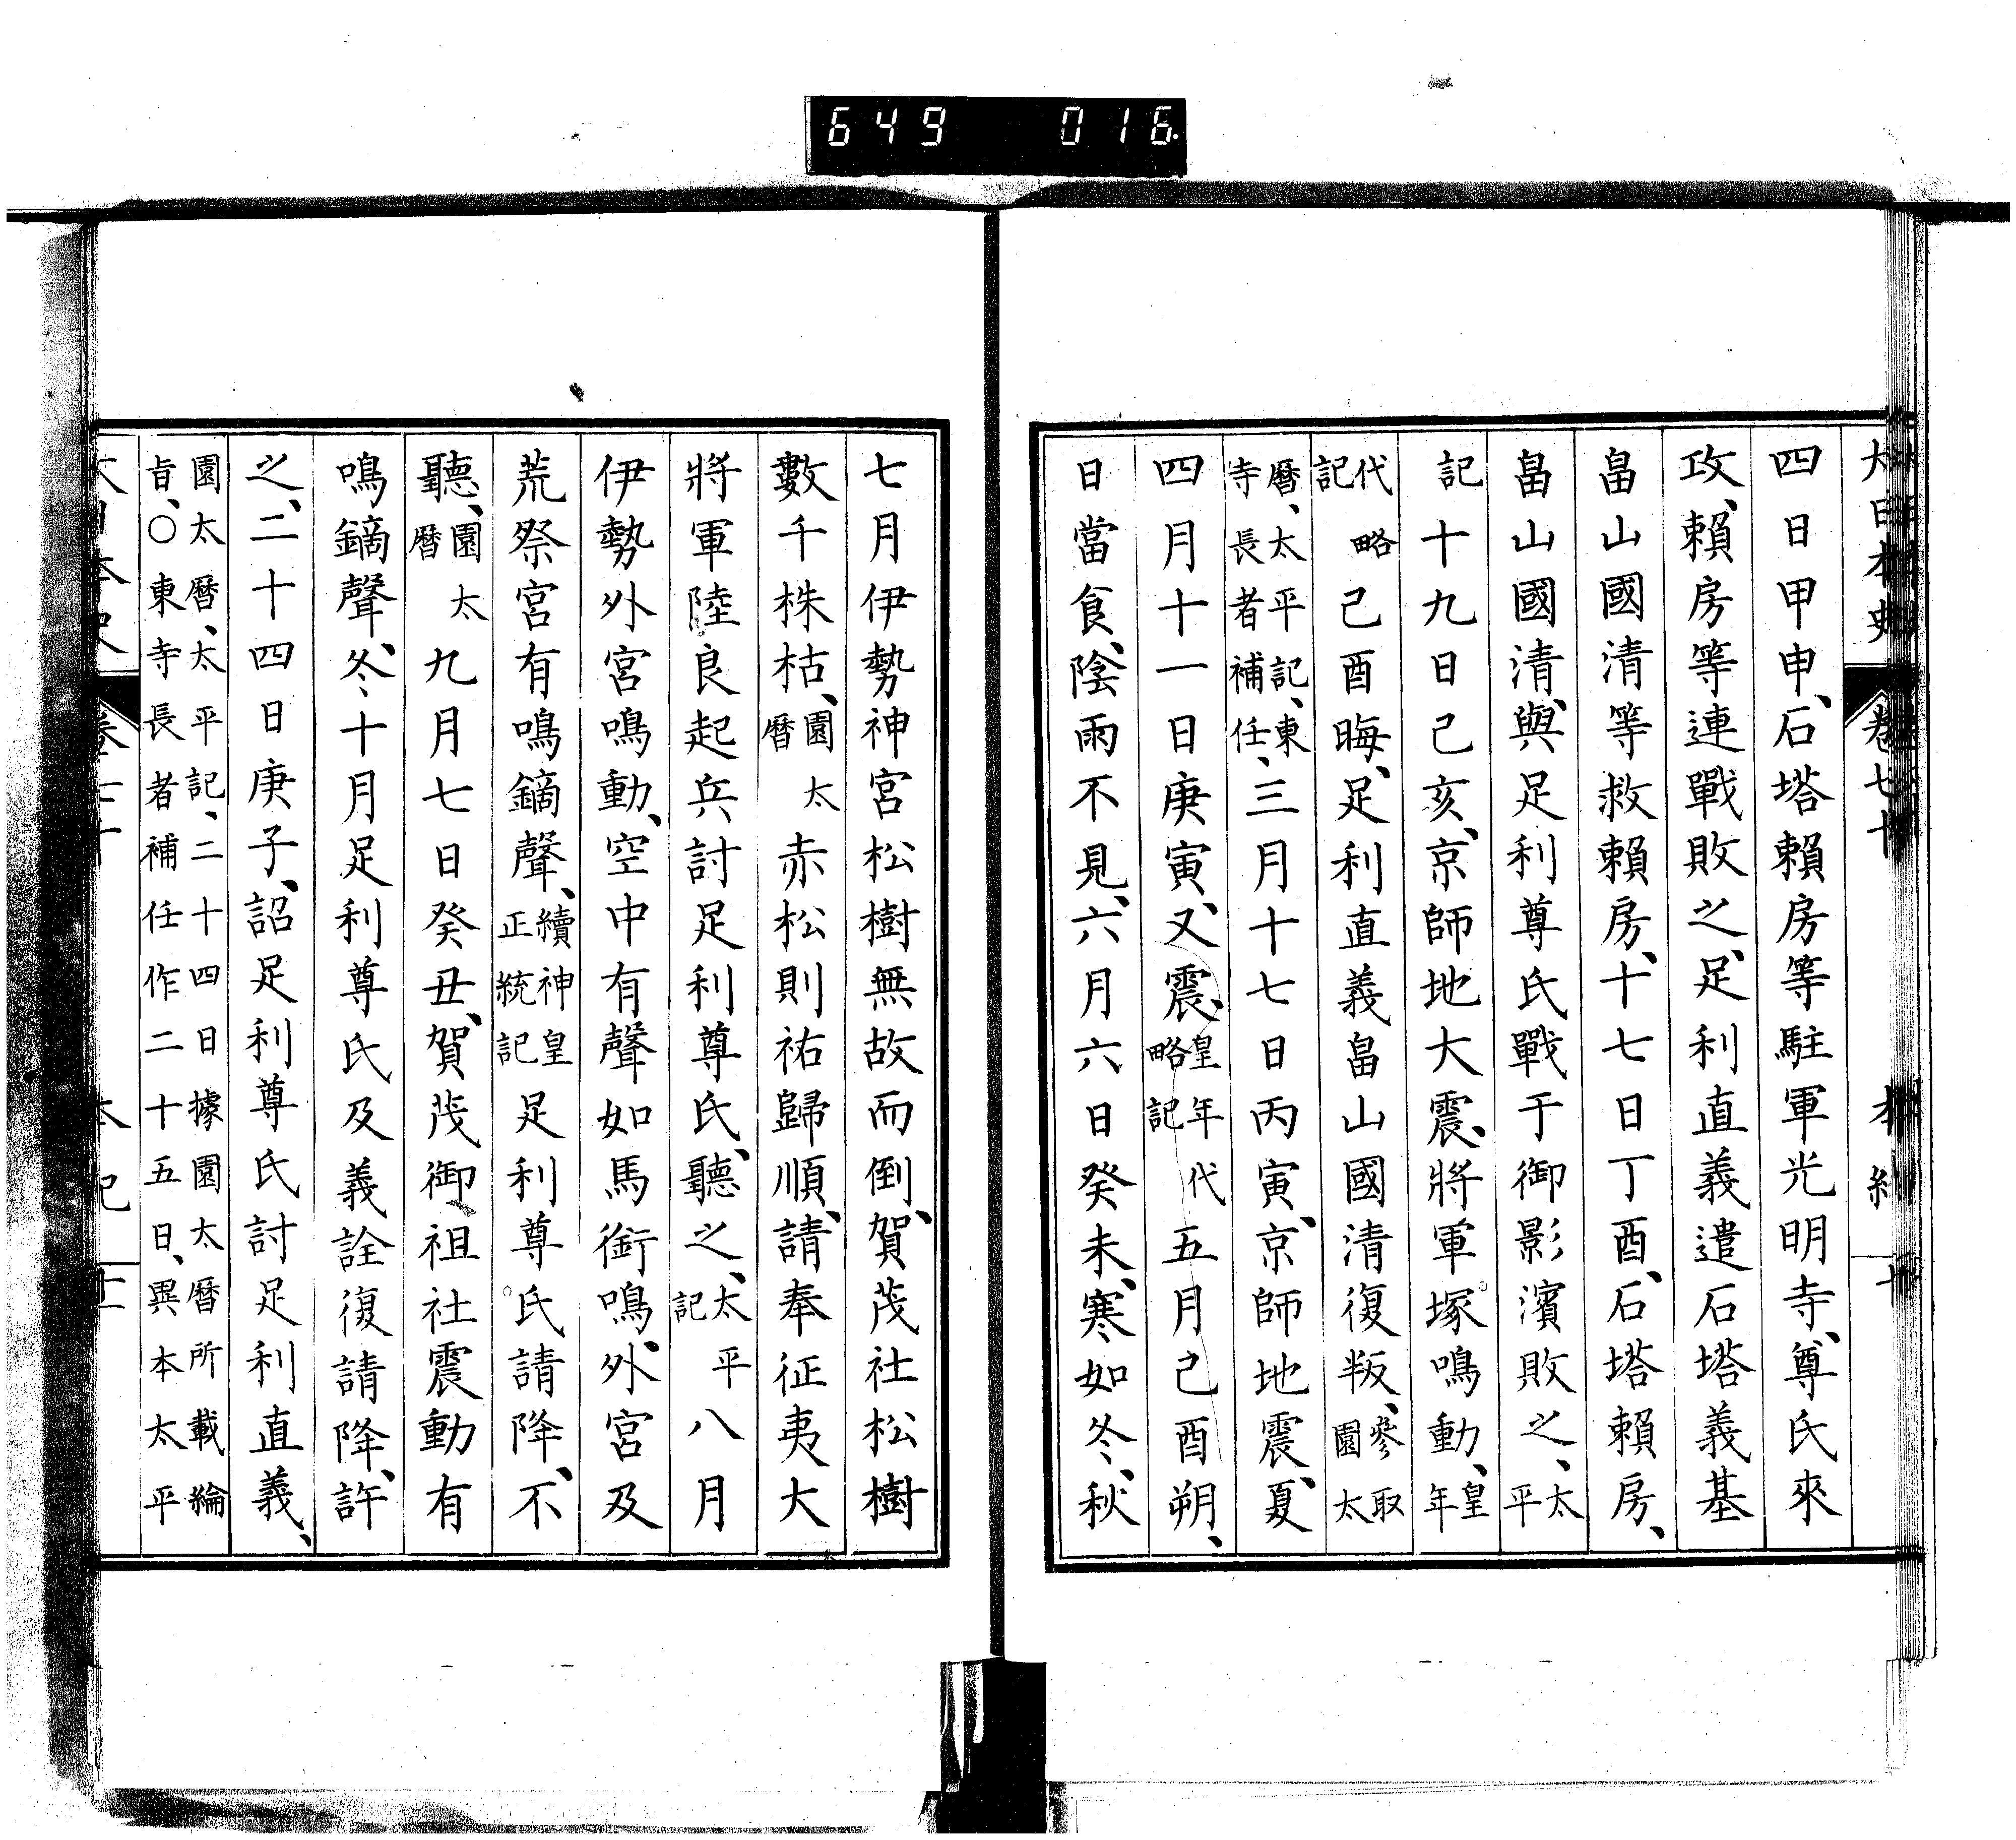 649 016
大日本史 卷七十 本紀 十
四日甲申、石塔賴房等駐軍光明寺、尊氏來
攻、賴房等連戰敗之、足利直義遣石塔義基
畠山國清等救賴房、十七日丁酉、石塔賴房、
畠山國清、與足利尊氏戰于御影濱敗之、太平
記十九日己亥、京師地大震、將軍塚鳴動、皇年
代略記己酉晦、足利直義畠山國清復叛、參取園太
曆、太平記、東寺長者補任、三月十七日丙寅、京師地震、夏、
四月十一日庚寅、又震、皇年代略記五月己酉朔、
日當食、陰雨不見、六月六日癸未、寒如冬、秋、
七月伊勢神宮松樹無故而倒、賀茂社松樹
數千株枯、園太曆赤松則祐歸順、請奉征夷大
將軍陸良起兵討足利尊氏、聽之、太平記八月
伊勢外宮鳴動、空中有聲如馬銜鳴、外宮及
荒祭宮有鳴鏑聲、續神皇正統記足利尊氏請降、不
聽、園太曆九月七日癸丑、賀茂御祖社震動有
鳴鏑聲、冬、十月足利尊氏及義詮復請降、許
之、二十四日庚子、詔足利尊氏討足利直義、
園太曆、太平記、二十四日據園太曆所載綸
旨、○東寺長者補任作二十五日、異本太平
大日本史 卷七十 本紀 十一